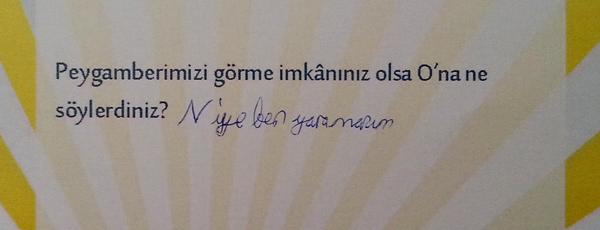 Peygamberimizi görme imkânınız olsa O'na ne
söylerdiniz? Niye ben yaramazım